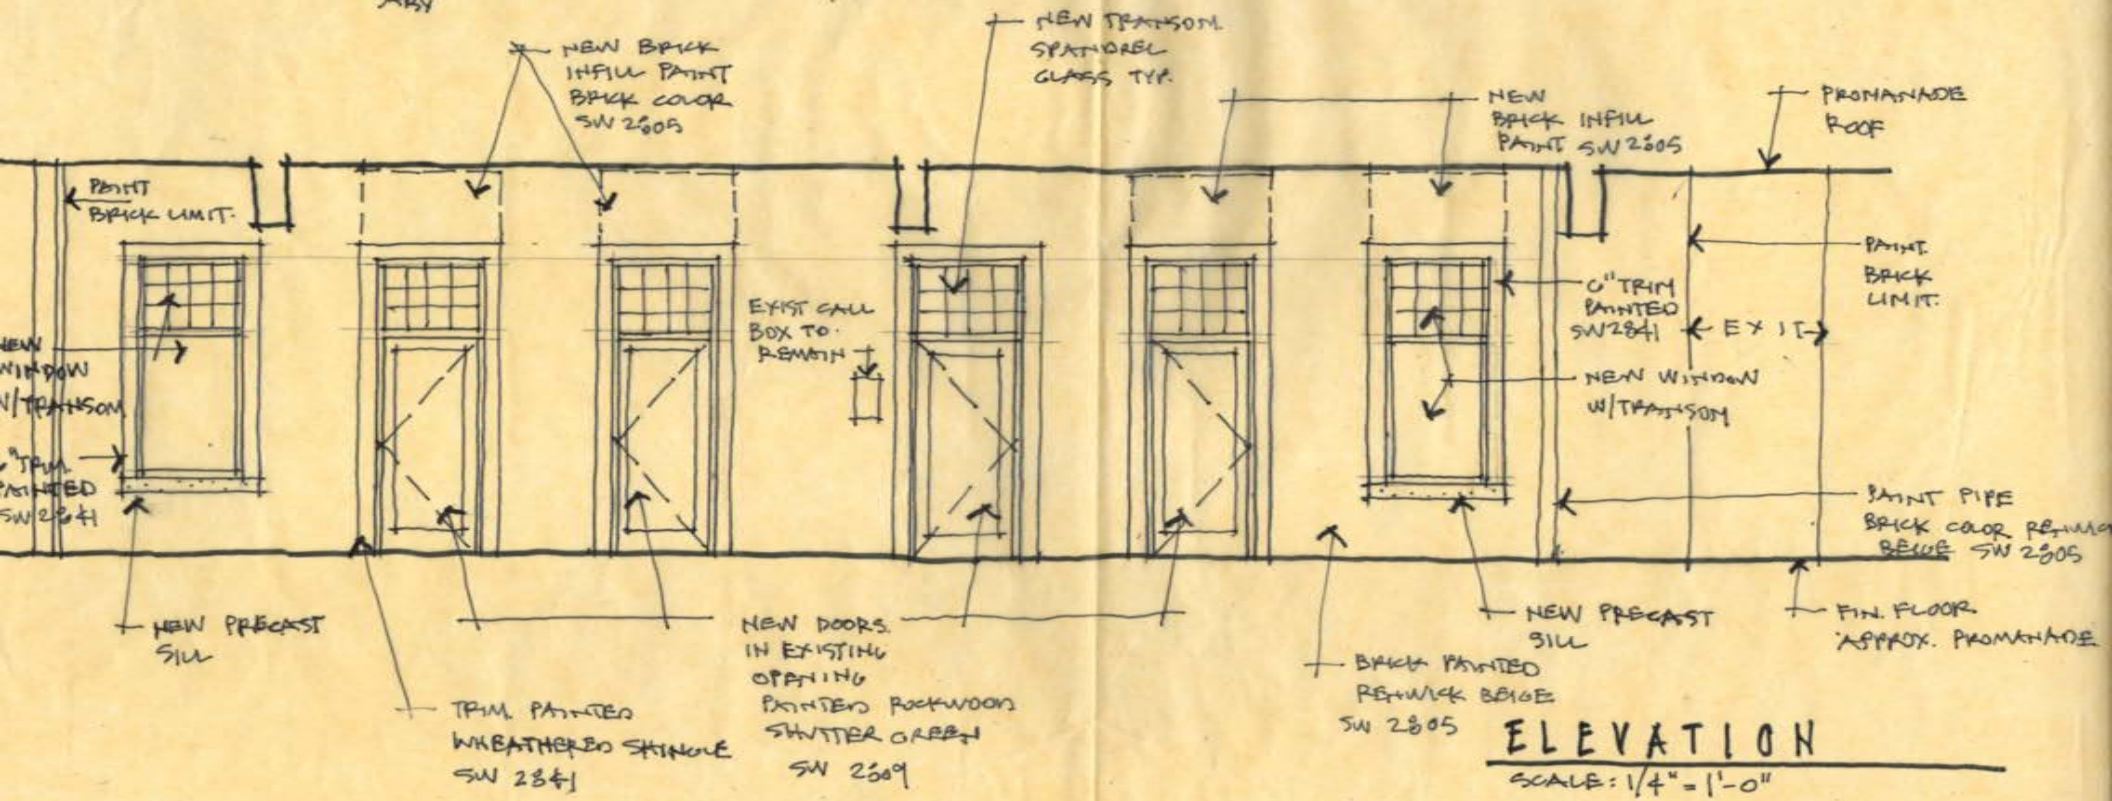 ARY
NEW BRICK
INFILL PAINT
BRICK COLOR
SW 2805
NEW TRANSOM
SPANDREL
GLASS TYP.
NEW
BRICK INFILL
PAINT SW 2805
PROMANADE
ROOF
PAINT
BRICK LIMIT.
NEW
WINDOW
W/TRANSOM
6" TRIM
PAINTED
SW 2841
EXIST CALL
BOX TO
REMAIN
6" TRIM
PAINTED
SW 2841
PAINT
BRICK
LIMIT.
EXIT
NEW WINDOW
W/TRANSOM
PAINT PIPE
BRICK COLOR RENWICK
BEIGE SW 2805
NEW PRECAST
SILL
TRIM PAINTED
WHEATHERED SHINGLE
SW 2841
NEW DOORS
IN EXISTING
OPENING
PAINTED ROCKWOOD
SHUTTER GREEN
SW 2809
BRICK PAINTED
RENWICK BEIGE
SW 2805
NEW PRECAST
SILL
FIN. FLOOR
APPROX. PROMANADE
ELEVATION
SCALE: 1/4" = 1'-0"